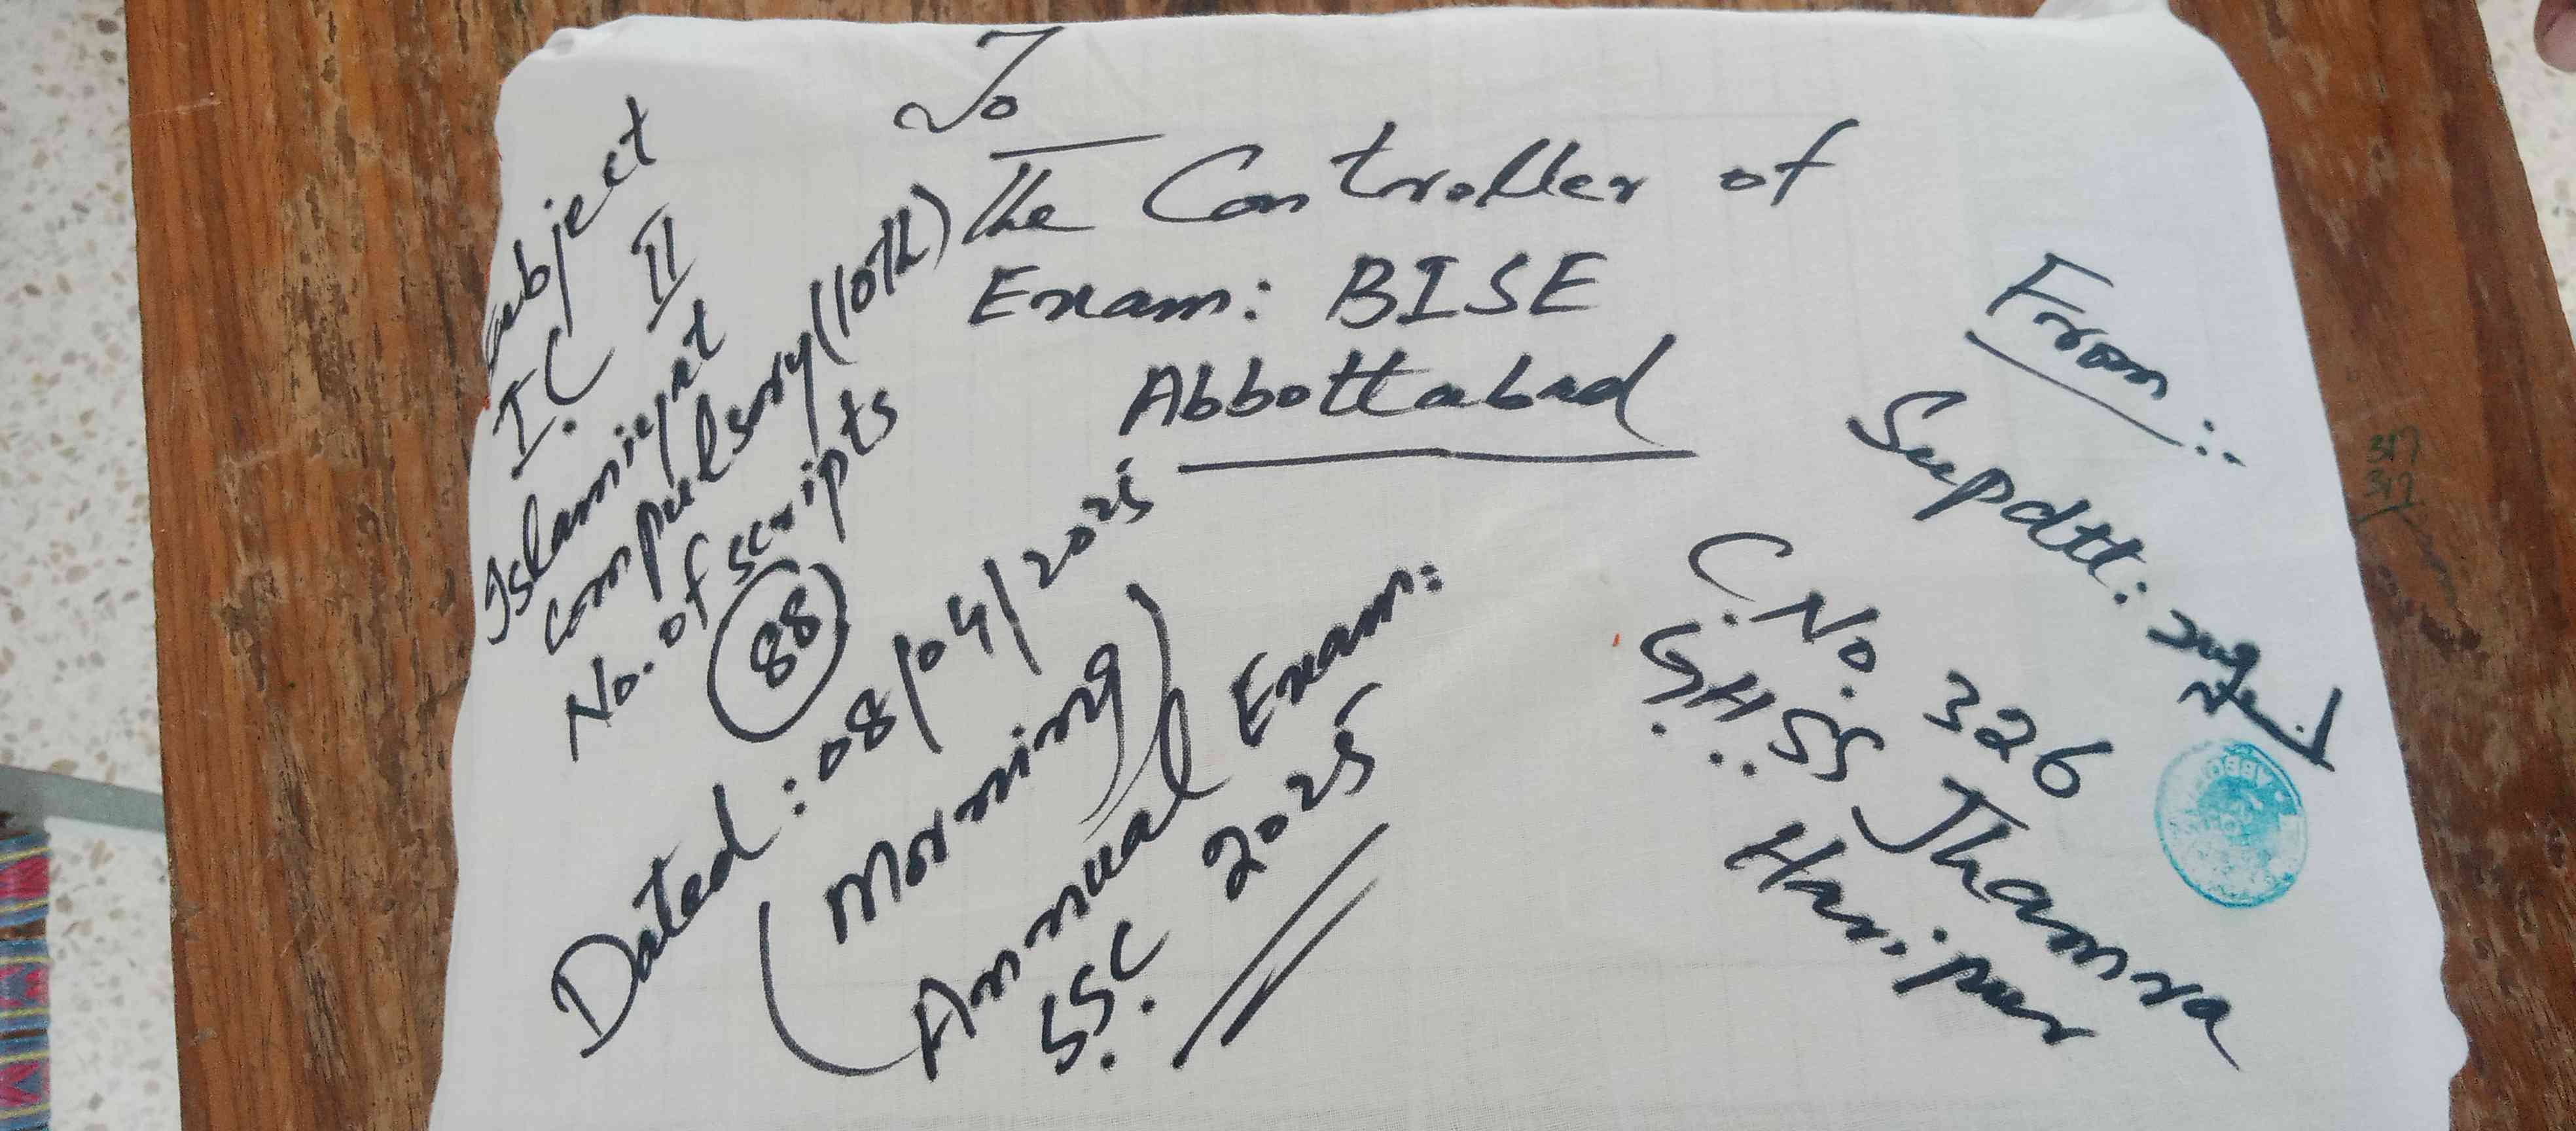 To
The Controller of
Exam: BISE
Abbottabad
Subject
I.C II
Islamiyat
Compulsory (10th)
No. of scripts
88
Dated: 08/04/2025
(Morning)
Annual Exam:
SSC 2025
From:-
Supdtt:
C.No. 326
G.H.SS Jhamra
Haripur
317
317